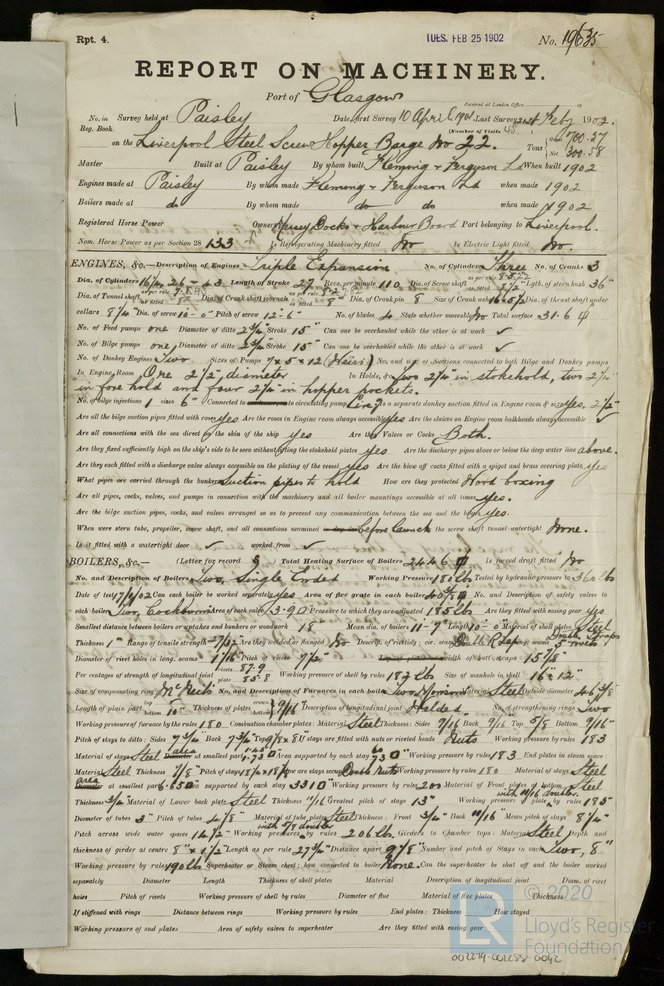 Rpt. 4.
TUES. FEB 25 1902
No. 19635
REPORT ON MACHINERY.
Port of Glasgow
Received at London Office
No. in Survey held at Paisley Date, first Survey 10 April 1901 Last Survey Feb 1902.
Reg. Book. (Number of Visits
on the Liverpool Steel Screw Hopper Barge No 22. Tons 700.27
300.58
Master Built at Paisley By whom built Fleming & Ferguson Ld When built 1902
Engines made at Paisley By whom made Fleming & Ferguson Ld when made 1902
Boilers made at do By whom made do do when made 1902
Registered Horse Power Owners Mersey Docks & Harbour Board Port belonging to Liverpool.
Nom. Horse Power as per Section 28 133 Is Refrigerating Machinery fitted No Is Electric Light fitted No.
ENGINES, &c.— Description of Engines Triple Expansion No. of Cylinders Three No. of Cranks 3
Dia. of Cylinders 16½, 26 - 43 Length of Stroke 27 Revs. per minute 110 Dia. of Screw shaft Lgth. of stern bush 36"
Dia. of Tunnel shaft Dia. of Crank shaft journals 8" Dia. of Crank pin 8 Size of Crank webs Dia. of thrust shaft under
collars 8¼" Dia. of screw 10-0" Pitch of screw 12-6" No. of blades 4 State whether moveable No Total surface 31.6
No. of Feed pumps one Diameter of ditto 2¾" Stroke 15" Can one be overhauled while the other is at work ✓
No. of Bilge pumps one Diameter of ditto 2¾" Stroke 15" Can one be overhauled while the other is at work ✓
No. of Donkey Engines Two Sizes of Pumps 7 x 5 x 12 (Weirs) No. and size of Suctions connected to both Bilge and Donkey pumps
In Engine Room One 2½" diameter In Holds, &c. Two 2¼" in stokehold, two
in fore hold and four 2½" in hopper pockets.
No. of bilge injections 1 sizes 6" Connected to circulating pump Is a separate donkey suction fitted in Engine room & size Yes, 2½"
Are all the bilge suction pipes fitted with roses yes Are the roses in Engine room always accessible yes Are the sluices on Engine room bulkheads always accessible ✓
Are all connections with the sea direct on the skin of the ship yes Are they Valves or Cocks Both.
Are they fixed sufficiently high on the ship's side to be seen without lifting the stokehold plates yes Are the discharge pipes above or below the deep water line above.
Are they each fitted with a discharge valve always accessible on the plating of the vessel yes Are the blow off cocks fitted with a spigot and brass covering plate yes
What pipes are carried through the bunkers Suction pipes to hold How are they protected Wood boxing
Are all pipes, cocks, valves, and pumps in connection with the machinery and all boiler mountings accessible at all times yes.
Are the bilge suction pipes, cocks, and valves arranged so as to prevent any communication between the sea and the bilges yes.
When were stern tube, propeller, screw shaft, and all connections examined before launch Is the screw shaft tunnel watertight None.
Is it fitted with a watertight door ✓ worked from ✓
BOILERS, &c.— (Letter for record S) Total Heating Surface of Boilers 2446 Is forced draft fitted No
No. and Description of Boilers Two, Single Ended Working Pressure 180 lbs Tested by hydraulic pressure to 360 lbs
Date of test 17/1/02 Can each boiler be worked separately yes Area of fire grate in each boiler No. and Description of safety valves to
each boiler Two, Cockburn Area of each valve Pressure to which they are adjusted 185 lbs Are they fitted with easing gear yes
Smallest distance between boilers or uptakes and bunkers or woodwork 18 Mean dia. of boilers 11-7" Length 10-0" Material of shell plates Steel
Thickness 1" Range of tensile strength 27/32 Are they welded or flanged No Descrip. of riveting: cir. seams Double R Lap long. seams Double Straps 5 rivets
Diameter of rivet holes in long. seams 1 1/16 Pitch of rivets 7½" width of butt straps 15⅞"
Per centages of strength of longitudinal joint rivets 87.9 plate 85.8 Working pressure of shell by rules 187 lbs Size of manhole in shell 16 x 12"
Size of compensating ring McNeil's No. and Description of Furnaces in each boiler Two, Morison Material Steel Outside diameter
Length of plain part Thickness of plates 9/16 Description of longitudinal joint Welded No. of strengthening rings Two
Working pressure of furnace by the rules 180 Combustion chamber plates: Material Steel Thickness: Sides 9/16 Back 9/16" Top 5/8 Bottom 9/16"
Pitch of stays to ditto: Sides Back 7¾" Top If stays are fitted with nuts or riveted heads Nuts Working pressure by rules 183
Material of stays Steel at smallest part Area supported by each stay Working pressure by rules 183 End plates in steam space:
Material Steel Thickness ⅞" Pitch of stays How are stays secured Double Nuts Working pressure by rules 180 Material of stays Steel
area at smallest part Area supported by each stay Working pressure by rules Material of Front plates at bottom Steel
Thickness ¾ Material of Lower back plate Steel Thickness 11/16 Greatest pitch of stays 13" Working pressure of plate by rules 185
Diameter of tubes 3" Pitch of tubes 4⅛" Material of tube plates Steel Thickness: Front ¾" Back 11/16" Mean pitch of stays 8¼"
Pitch across wide water spaces 14½" Working pressures by rules 206 lbs Girders to Chamber tops: Material Steel Depth and
thickness of girder at centre 8" x 1½" Length as per rule 27¾" Distance apart 9⅞" Number and pitch of Stays in each Two, 8"
Working pressure by rules 190 lbs Superheater or Steam chest; how connected to boiler None. Can the superheater be shut off and the boiler worked
separately Diameter Length Thickness of shell plates Material Description of longitudinal joint Diam. of rivet
holes Pitch of rivets Working pressure of shell by rules Diameter of flue Material of flue plates Thickness
If stiffened with rings Distance between rings Working pressure by rules End plates: Thickness How stayed
Working pressure of end plates Area of safety valves to superheater Are they fitted with easing gear
LR © 2020
Lloyd's Register
Foundation
002279-002288-0042